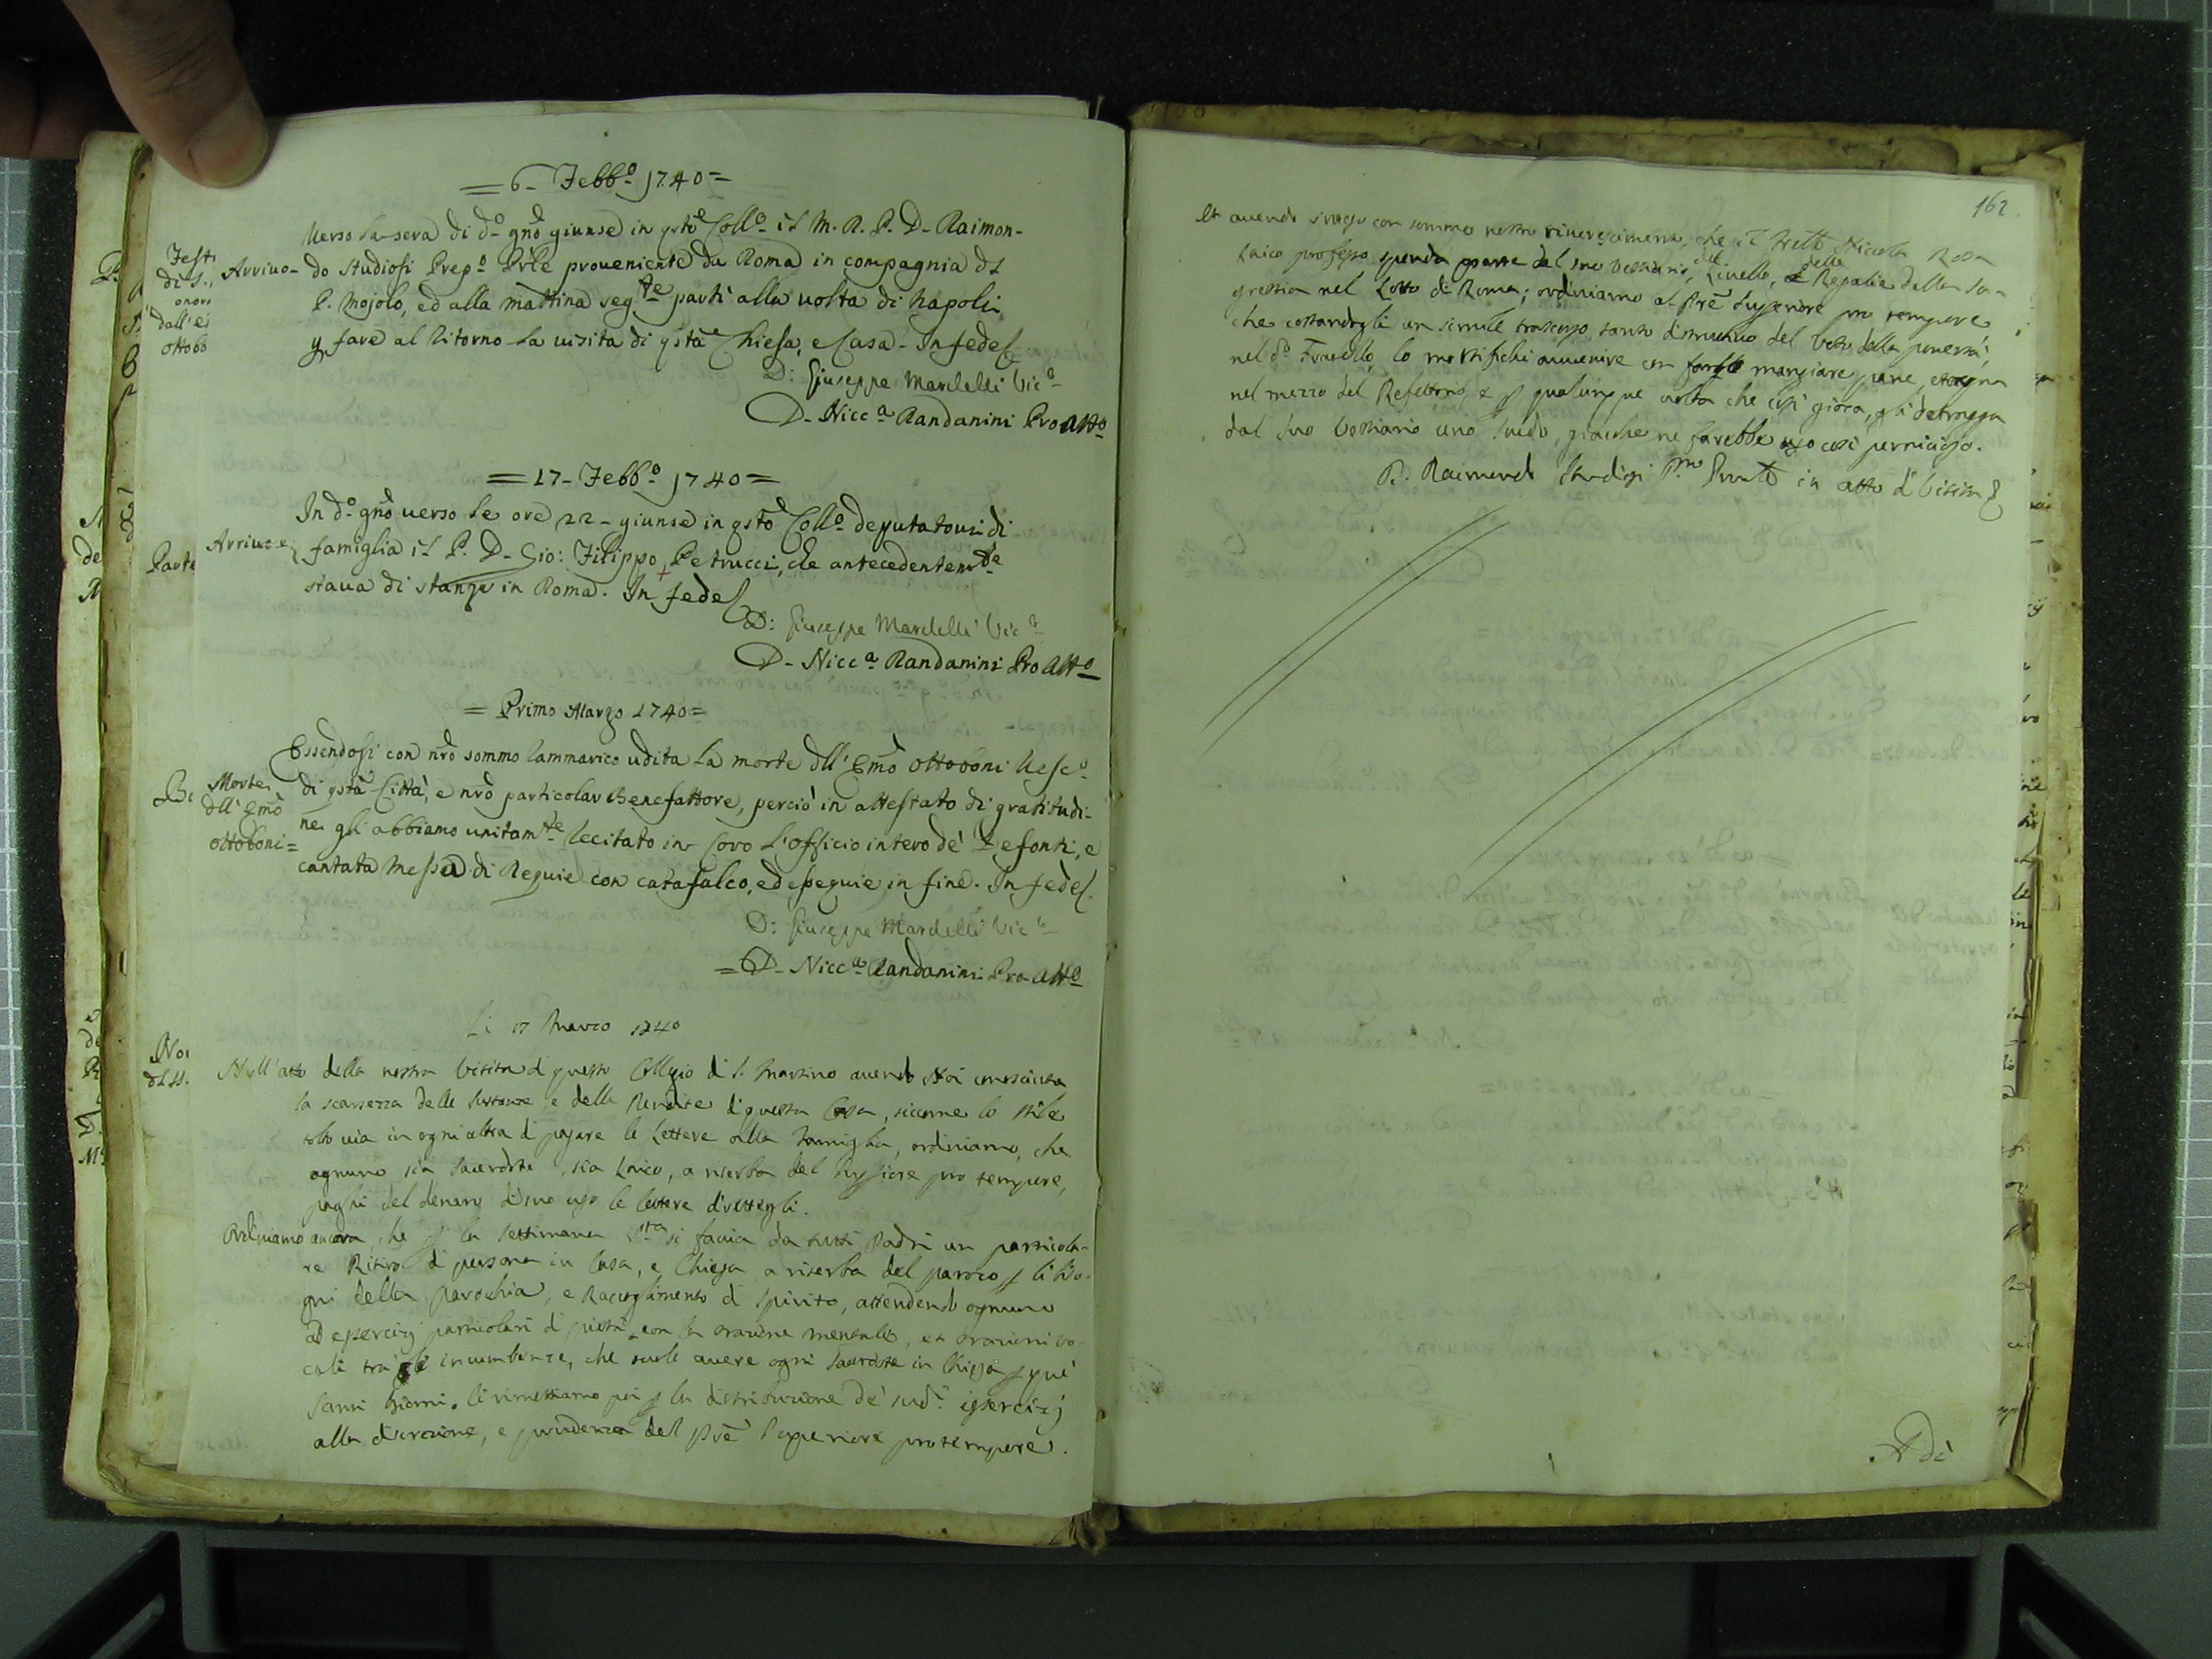 = 6 - Febb.o 1740 =
Verso la sera di d.o gño giunse in qsto Coll.o il M. R. P. D. Raimon-
Arrivo - do Studiosi Prep.o Prle proveniente da Roma in compagnia dl
P. Mojolo, ed alla mattina seg.te partì alla volta di Napoli,
p fare al Ritorno la visita di qsta Chiesa, e Casa - In fede
D: Giuseppe Mardelli Vic.o
D. Nicc.a Randanini Pro Att.o
= 17 - Febb.o 1740 =
In d.o gño verso le ore 22 - giunse in qsto Coll.o deputatovi di
Arrivo e famiglia il P. D. Gio: Filippo Petrucci, che antecedentem.te
stava di stanza in Roma. In fede
D: Giuseppe Mardelli Vic.o
D. Nicc.a Randanini Pro Att.o
= Primo Marzo 1740 =
Essendosi con nrõ sommo Rammarico udita la morte dll' Emõ Ottoboni Vesc.o
Morte di qsta Città, e nrõ particolar Benefattore, perciò in attestato di gratitudi-
dll' Emõ ne gli abbiamo unitam.te Recitato in Coro l'Officio intero de' Defonti, e
Ottoboni = cantata Messa di Requie con catafalco, ed esequie in fine. In fede
D: Giuseppe Mardelli Vic.o
= D. Nicc.a Randanini Pro Att.o
Li 17 Marzo 1740
Nell'atto della nostra Visita di questo Collegio di S. Martino avendo Noi conosciuta
la scarsezza delle Sustanze, e delle Rendite di questa Casa, siccome lo stile
in ogni altra di pagare le Lettere alla Famiglia, ordiniamo, che
ognuno sia Sacerdote, sia Laico, a riserba del Supiore pro tempore,
paghi del denaro di suo uso le lettere direttegli.
Ordiniamo ancora, che p la Settimana S.ta si faccia da tutti Padri un particola-
re Ritiro di persona in Casa, e Chiesa, a riserba del paroco p li biso-
gni della Parochia, e Raccoglimento di Spirito, attendendo ognuno
ad esercizj particolari di pietà con la orazione mentale, ed orazioni vo-
cali tra le incumbenze, che suole avere ogni Sacerdote in Chiesa p que'
Santi Giorni. Ci rimettiamo poi p la distribuzione de' sud.i esercizj
alla discrezione, e prudenza del Prẽ Superiore pro tempore.
162.
Et avendo inteso con sommo nostro rincrescimento, che il Frello Niccola Rosa
Laico professo spenda parte del suo Vestiario, del Livello, e delle Regalie della Sa-
grestia nel Lotto di Roma; ordiniamo al Prẽ Superiore pro tempore
che costandogli un simile trascorso, tanto distruttivo del Voto della povertà
nel d.o Fratello, lo mortifichi con fargli mangiare pane, et acqua
nel mezzo del Refettorio, e p qualunque volta che così gioca, gli detragga
dal suo Vestiario uno scudo, giacche ne farebbe uso così pernicioso.
D. Raimondo Studiosi P.to Prũle in atto di Visita
A dì